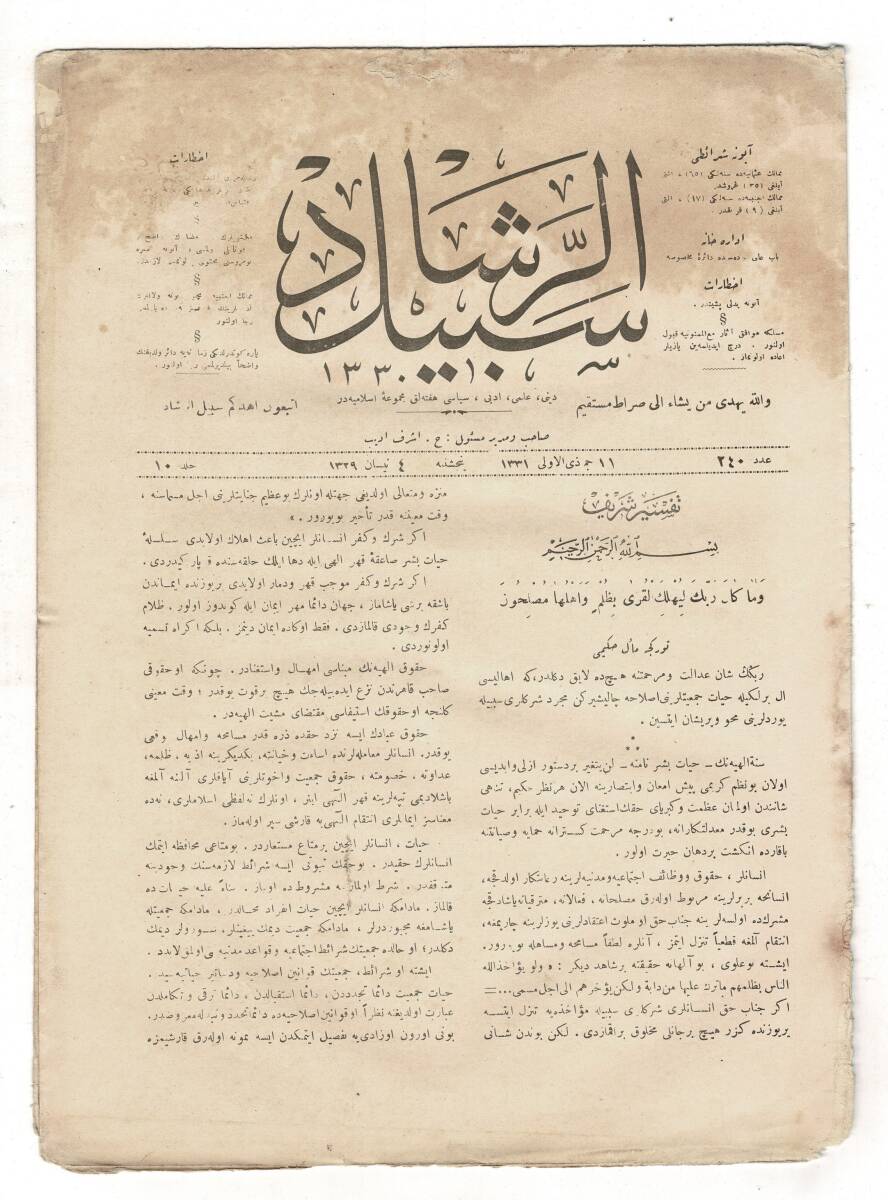 آبونه شرائطی
ممالك عثمانیه‌ده سنه‌لكی (٦٥) ، التی
آیلغی (٣٥) غروشدر
ممالك اجنبیه‌ده سنه‌لكی (١٧) ، التی
آیلغی (٩) فرنقدر.
اداره خانه
باب عالی جاده‌سنده دائرۀ مخصوصه
اخطارات
آبونه بدلی پشیندر.
§
مسلكه موافق آثار مع‌الممنونیه قبول
اولنور . درج ایدیلمه‌ین یازیلر
اعاده اولونماز .
اخطارات
§
§
پاره كوندرلدیكی زمان نه‌یه دائر اولدیغنك
واضحاً بیلدیرلمسی رجا اولنور .
سبیل الرشاد
١٣٣٠
والله یهدی من یشاء الی صراط مستقیم
دینی، علمی، ادبی ، سیاسی هفته‌لق مجموعۀ اسلامیه‌در
اتبعون اهدكم سبیل الرشاد
صاحب ومدیر مسئول : ح . اشرف ادیب
عدد ٢٤٠
١١ جمادی الاولی ١٣٣١
پنجشنبه
٤ نیسان ١٣٢٩
جلد ١٠
تفسیر شریف
بسم الله الرحمن الرحیم
وَمَا كَانَ رَبُّكَ لِيُهْلِكَ الْقُرَى بِظُلْمٍ وَاَهْلُهَا مُصْلِحُونَ
توركجه مآل حكیمی
ربڭك شان عدالت ومرحمتنه هیچ‌ده لایق دكلدر، كه اهالیسی
ال برلكیله حیات جمعیتلرینی اصلاحه چالیشیركن مجرد شركلری سببیله
یوردلرینی محو وپریشان ایتسین .
***
سنة الهیه‌نك ــ حیات بشر نامنه ــ لن یتغیر بر دستور ازلی وابدیسی
اولان بو نظم كریمی پیش امعان وابتصارینه الان هر نظر حكیم، تناهی
شانندن اولمیان عظمت وكبریای حقك استغنای توحید ایله برابر حیات
بشری بو قدر معدلتكارانه ، بو درجه مرحمت كسترانه حمایه وصیانتنه
باقارده انكشت بر دهان حیرت اولور .
انسانلر ، حقوق ووظائف اجتماعیه ومدنیه‌لرینه رعایتكار اولدقجه،
انسانجه بربرلرینه مربوط اوله‌رق مصلحانه، فعالانه ، مترقیانه یاشادقجه
مشرك‌ده اولسه‌لر ینه جناب حق او ملوث اعتقادلرینی یوزلرینه چارپمغه،
انتقام آلمغه قطعیاً تنزل ایتمز ، آنلره لطفاً مسامحه ومساهله بویورور.
ایشته بو علوی ، بو آلهانه حقیقته بر شاهد دیكر : « ولو یؤاخذ الله
الناس بظلمهم ماترك علیها من دابة ولكن یؤخرهم الی اجل مسمی...=
اكر جناب حق انسانلری شركلری سببیله مؤاخذه‌یه تنزل ایتسه
یریوزنده كزر هیچ بر جانلی مخلوق براقمازدی . لكن بوندن شانی
منزه ومتعالی اولدیغی جهتله اونلرك بو عظیم جنایتلرینی اجل مسماسنه ،
وقت معینه قدر تأخیر بویورور . »
اكر شرك وكفر انسانلر ایچین باعث اهلاك اولایدی سلسلۀ
حیات بشر صاعقۀ قهر الهی ایله دها ایلك حلقه‌سنده قوپار كیدردی .
اكر شرك وكفر موجب قهر ودمار اولایدی یریوزنده ایماندن
باشقه برشی یاشاماز ، جهان دائما مهر ایمان ایله كوندوز اولور . ظلام
كفرك وجودی قالمازدی . فقط اوكاده ایمان دینمز . بلكه اكراه تسمیه
اولونوردی .
حقوق الهیه‌نك مبناسی امهال واستغنادر . چونكه او حقوقی
صاحب قاهرندن نزع ایده‌بیله‌جك هیچ بر قوت یوقدر ؛ وقت معینی
كلنجه او حقوقك استیفاسی مقتضای مشیت الهیه‌در .
حقوق عبادك ایسه نزد حقده ذره قدر مسامحه وامهال وقعی
یوقدر. انسانلر معامله‌لرنده اسائت وخیانته، یكدیكرینه اذیه ، ظلمه،
عداوته ، خصومته ، حقوق جمعیت واخوتلرینی آیاقلری آلتنه آلمغه
باشلادیمی تپه‌لرینه قهر الٓهی اینر ، اونلرك نه لفظی اسلاملری، نه‌ده
معناسز ایمانلری انتقام الٓهی‌یه قارشی سپر اوله‌ماز .
حیات ، انسانلر ایچین بر متاع مستعاردر . بو متاعی محافظه ایتمك
انسانلرك حقیدر . بو حقك ثبوتی ایسه شرائط لازمه‌سنك وجودینه
متوقفدر. شرط اولمازسه مشروط‌ده اولماز . بناءً علیه حیات‌ده
قالماز. مادامكه انسانلر ایچین حیات انفراد محالدر ، مادامكه جمعیتله
یاشامغه مجبوردرلر ، مادامكه جمعیت دیمك ییغینلر ، سورولر دیمك
دكلدر؛ او حالده جمعیتك شرائط اجتماعیه وقواعد مدنیه‌سی اولمق لابددر .
ایشته او شرائط، جمعیتك قوانین اصلاحیه ودساتیر حیاتیه‌سیدر .
حیات جمعیت دائما تجدددن ، دائما استقبالدن ، دائما ترقی وتكاملدن
عبارت اولدیغنه نظراً او قوانین اصلاحیه‌ده دائما تجدد وتبدله معروضدر.
بونی اوزون اوزادی‌یه تفصیل ایتمكدن ایسه نمونه اوله‌رق قارشیمزه